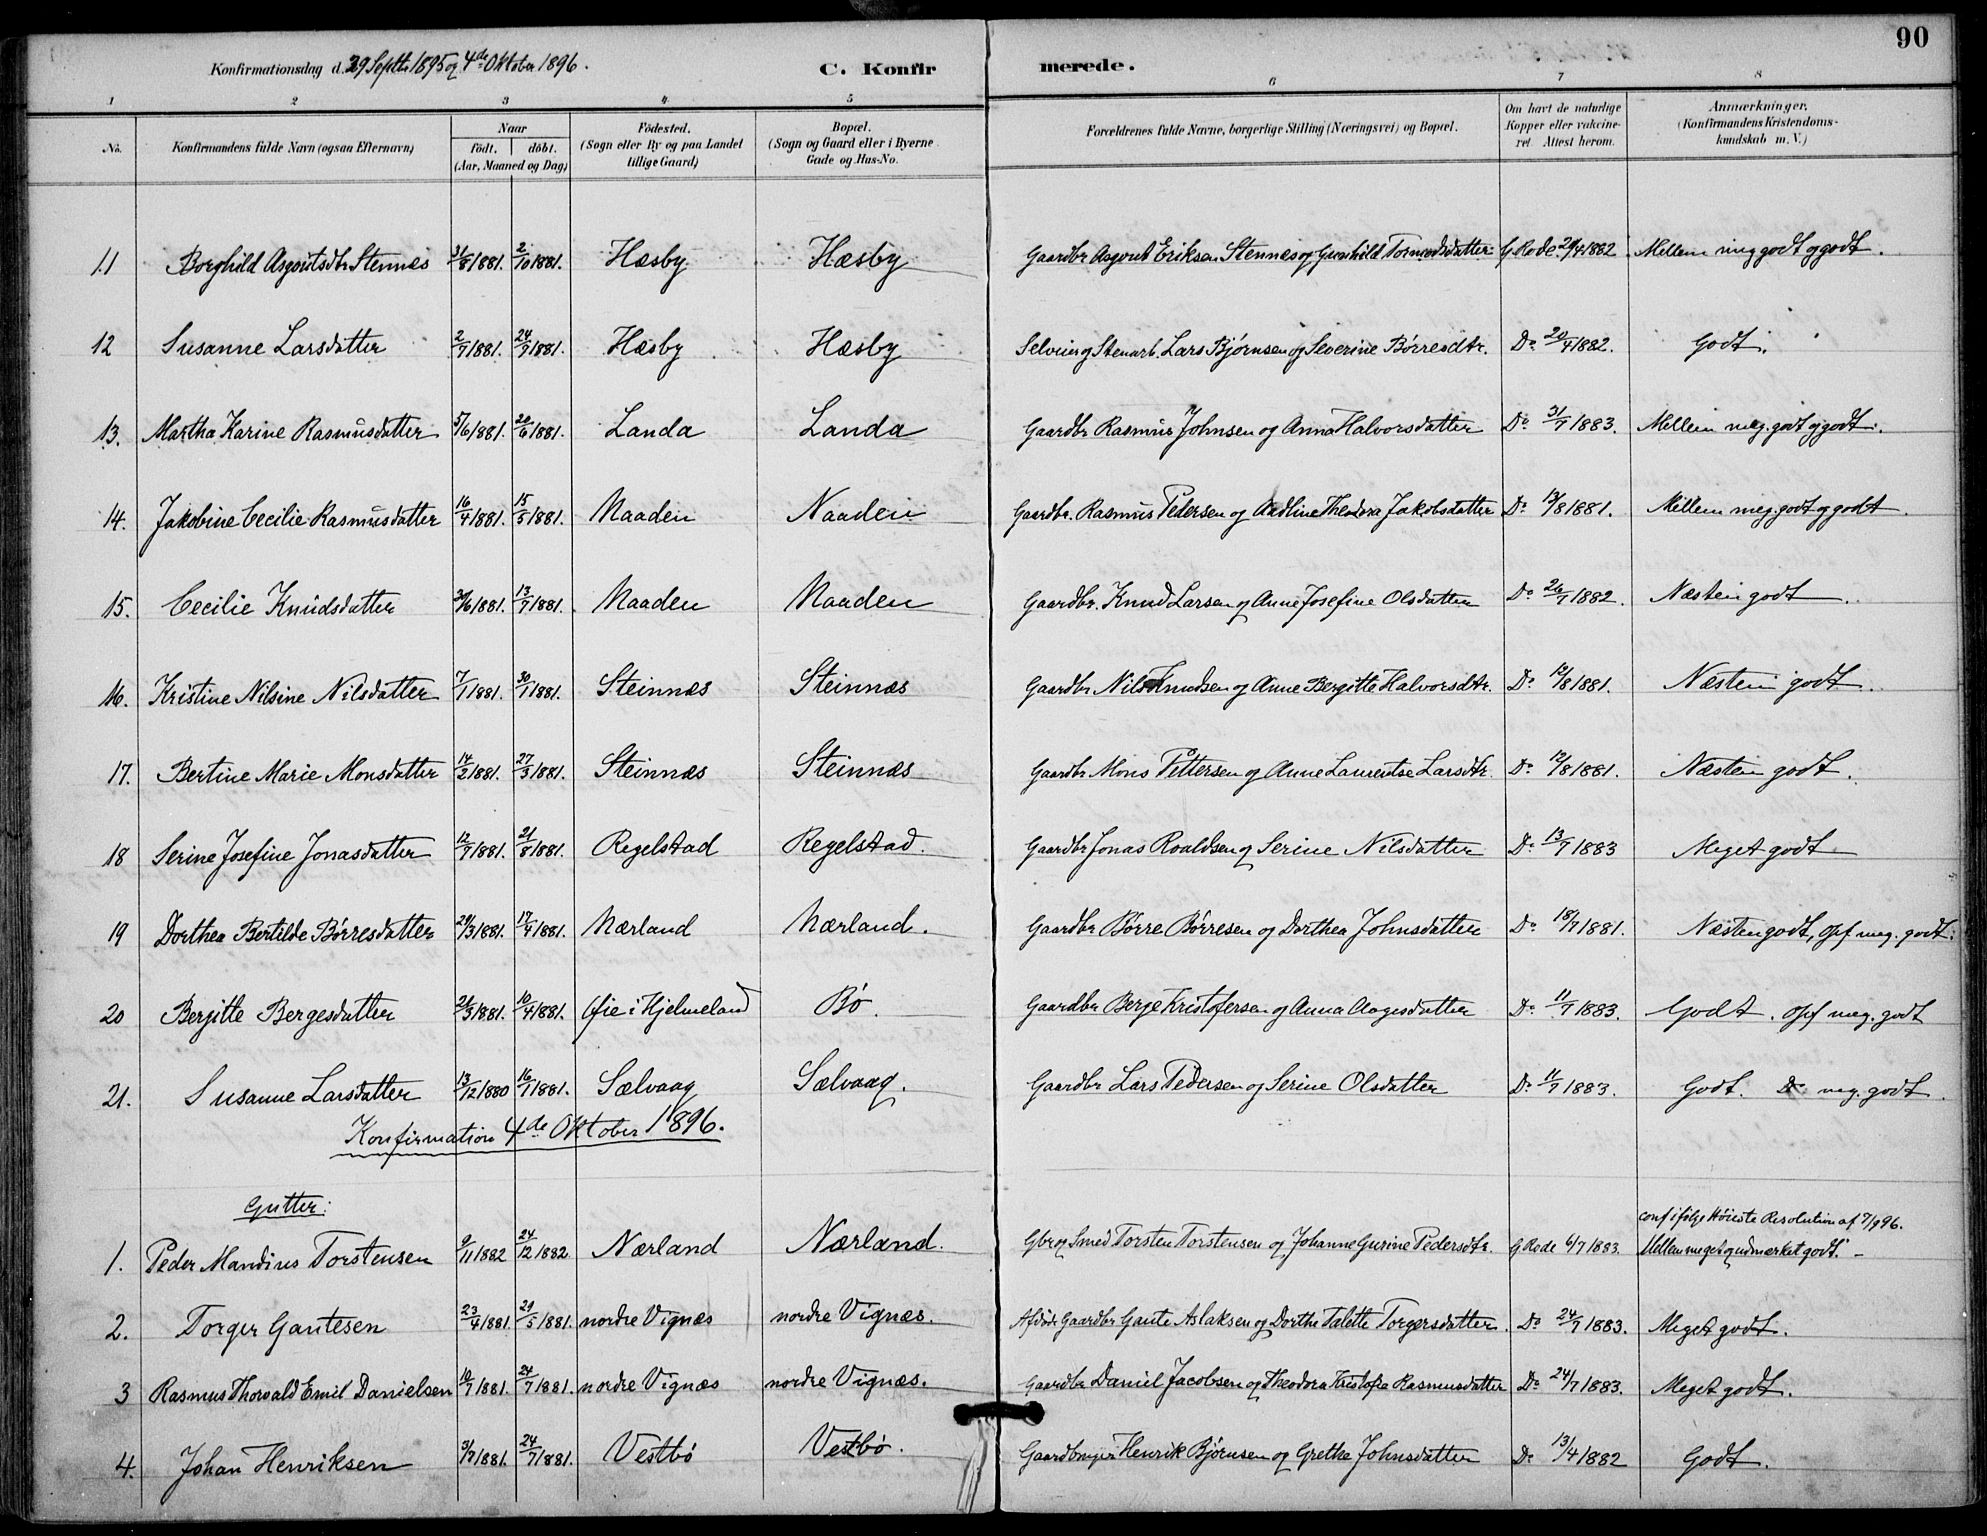 90
Konfirmationsdag d. 29 Septbr 1895 og 4de Oktober 1896.
C. Konfirmerede.
1 2 3 4 5 6 7 8
No. Konfirmandens fulde Navn (ogsaa Efternavn) Naar født. døbt. (Aar, Maaned og Dag) Fødested. (Sogn eller By og paa Landet tillige Gaard) Bopæl. (Sogn og Gaard eller i Byerne Gade og Hus-No. Forældrenes fulde Navne, borgerlige Stilling (Næringsvei) og Bopæl. Om havt de naturlige Kopper eller vakcineret. Attest herom. Anmærkninger. (Konfirmandens Kristendomskundskab m. V.)
11 Borghild Asgoutsdtr Stennæs 31/8 1881. 2/10 1881. Hæsby Hæsby Gaardbr Asgout Eriksen Stennæs og Gunhild Tormodsdatter G Rode 29/4 1882 Mellem meg godt og godt.
12 Susanne Larsdatter 2/7 1881. 24/7 1881. Hæsby Hæsby Selvei og Stenarb. Lars Bjørnsen og Severine Børresdtr. Do 20/4 1882. Godt.
13. Martha Karine Rasmusdatter 5/6 1881. 26/6 1881. Landa Landa Gaardbr Rasmus Johnsen og Anna Halvorsdatter Do 31/7 1883. Mellem meg. godt og godt.
14. Jakobine Cecilie Rasmusdatter 16/4 1881. 15/5 1881. Naaden Naaden Gaardbr. Rasmus Pedersen og Aadline Theodora Jakobsdatter Do 13/8 1881. Mellem meg. godt og godt.
15. Cecilie Knudsdatter 24/6 1881. 13/7 1881. Naaden Naaden Gaardbr. Knud Larsen og Anne Josefine Olsdatter Do 26/7 1882. Næsten godt.
16. Kristine Nilsine Nilsdatter 7/1 1881. 30/1 1881. Steinnæs Steinnæs Gaardbr Nils Knudsen og Anne Bergitte Halvorsdtr. Do 12/8 1881. Næsten godt.
17. Bertine Marie Monsdatter 14/2 1881. 27/3 1881. Steinnæs Steinnæs Gaardbr Mons Pettersen og Anne Laurentse Larsdtr. Do 12/8 1881. Næsten godt.
18 Serine Josefine Jonasdatter 12/7 1881. 21/8 1881. Regelstad Regelstad. Gaardbr Jonas Roaldsen og Serine Nilsdatter Do 13/7 1883 Meget godt
19 Dorthea Bertilde Børresdatter 29/3 1881. 17/4 1881. Nærland Nærland. Gaardbr Børre Børresen og Dorthea Johnsdatter Do 18/7 1881. Næsten godt, Opf meg. godt.
20 Berjitte Bergesdatter 21/3 1881. 10/4 1881. Øie i Hjelmeland Bø. Gaardbr Berge Kristofersen og Anna Aagesdatter Do 11/7 1883. Godt. Opf meg. godt
21. Susanne Larsdatter 13/12 1880 16/1 1881. Sælvaag Sælvaag. Gaardbr Lars Pedersen og Serine Olsdatter Do 11/7 1883. Godt. Do meg. godt.
Konfirmation 4de Oktober 1896.
Gutter:
conf ifølge Høieste Resolution af 7/9 96.
1. Peder Mandius Torstensen 9/11 1882 24/12 1882 Nærland Nærland. Gbr og Smed Torsten Torstensen og Johanne Gurine Pedersdtr. G Rode 6/7 1883. Mellem meget og udmærket godt. -
2. Torger Gautesen 23/4 1881. 29/5 1881. nordre Vignæs nordre Vignæs. Afdøde Gaardbr Gaute Aslaksen og Dorthe Talette Torgersdatter. Do 24/7 1883. Meget godt.
3 Rasmus Thorvald Emil Danielsen 10/7 1881. 24/7 1881. nordre Vignæs nordre Vignæs. Gaardbr Daniel Jacobsen og Theodora Kristofia Rasmusdatter Do 24/7 1883. Meget godt.
4. Johan Henriksen 3/7 1881. 24/7 1881. Vestbø Vestbø. Gaardbruger Henrik Bjørnsen og Grethe Johnsdatter Do 13/4 1882 Godt.